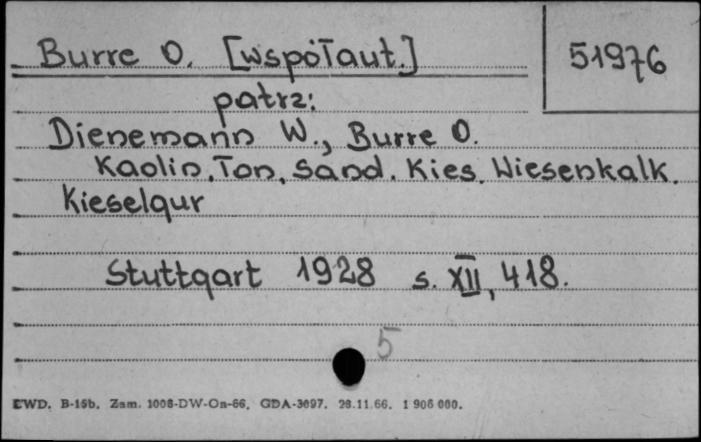 Burre O. [współaut.]
51976
patrz:
Dienemann W., Burre O.
Kaolin, Ton, Sand, Kies, Wiesenkalk,
Kieselgur
Stuttgart 1928 s. XII, 418.
5
EWD. B-15b. Zam. 1008-DW-On-66. GDA-3097. 28.11.66. 1 906 000.